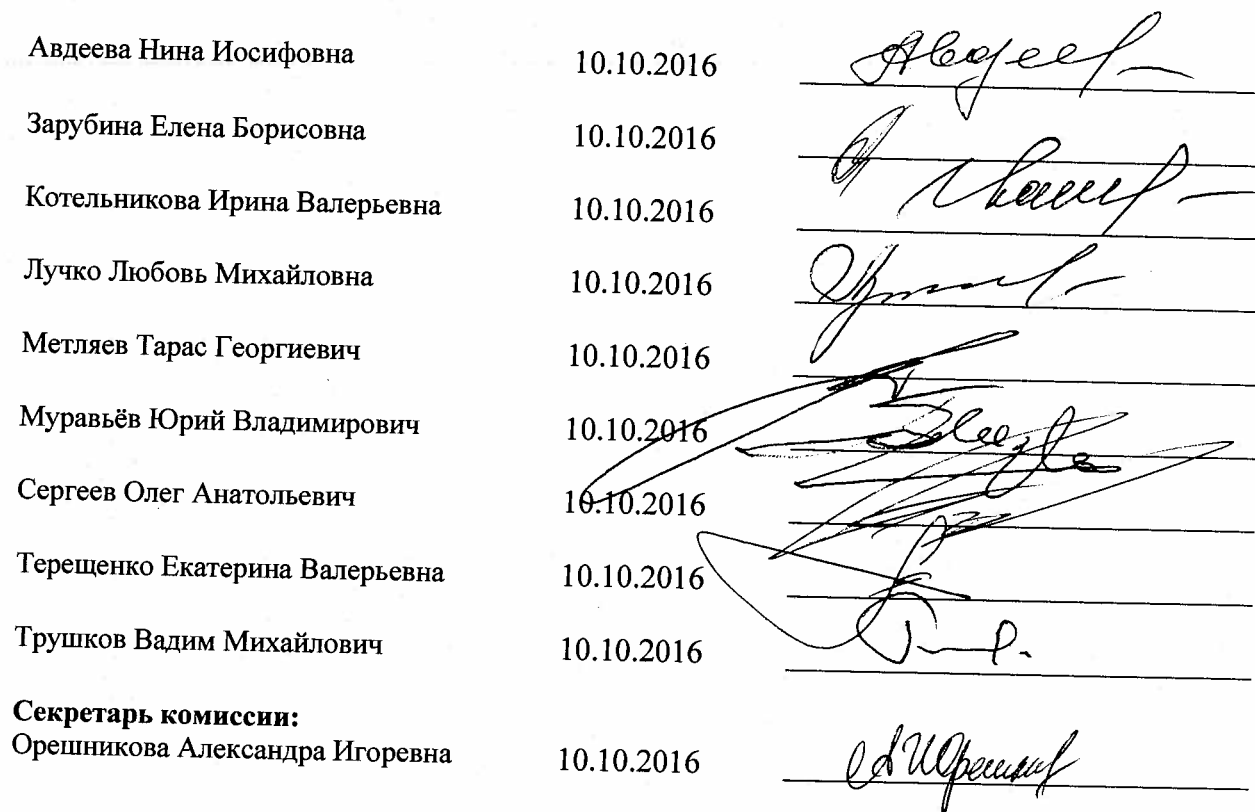 Авдеева Нина Иосифовна 10.10.2016
Зарубина Елена Борисовна 10.10.2016
Котельникова Ирина Валерьевна 10.10.2016
Лучко Любовь Михайловна 10.10.2016
Метляев Тарас Георгиевич 10.10.2016
Муравьёв Юрий Владимирович 10.10.2016
Сергеев Олег Анатольевич 10.10.2016
Терещенко Екатерина Валерьевна 10.10.2016
Трушков Вадим Михайлович 10.10.2016
Секретарь комиссии:
Орешникова Александра Игоревна 10.10.2016